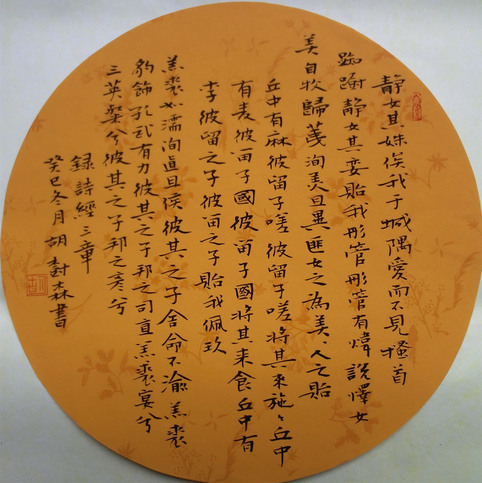 靜女其姝俟我于城隅愛而不見搔首
踟躕靜女其孌貽我彤管彤管有煒說懌女
美自牧歸荑洵美且異匪女之為美、人之貽
丘中有麻彼留子嗟彼留子嗟將其來施、丘中
有麦彼留子國彼留子國將其来食丘中有
李彼留之子彼留之子貽我佩玖
羔裘如濡洵直且侯彼其之子舍命不渝羔裘
豹飾孔武有力彼其之子邦之司直羔裘宴兮
三英粲兮彼其之子邦之彥兮
録詩經三章
癸巳冬月胡尌森書